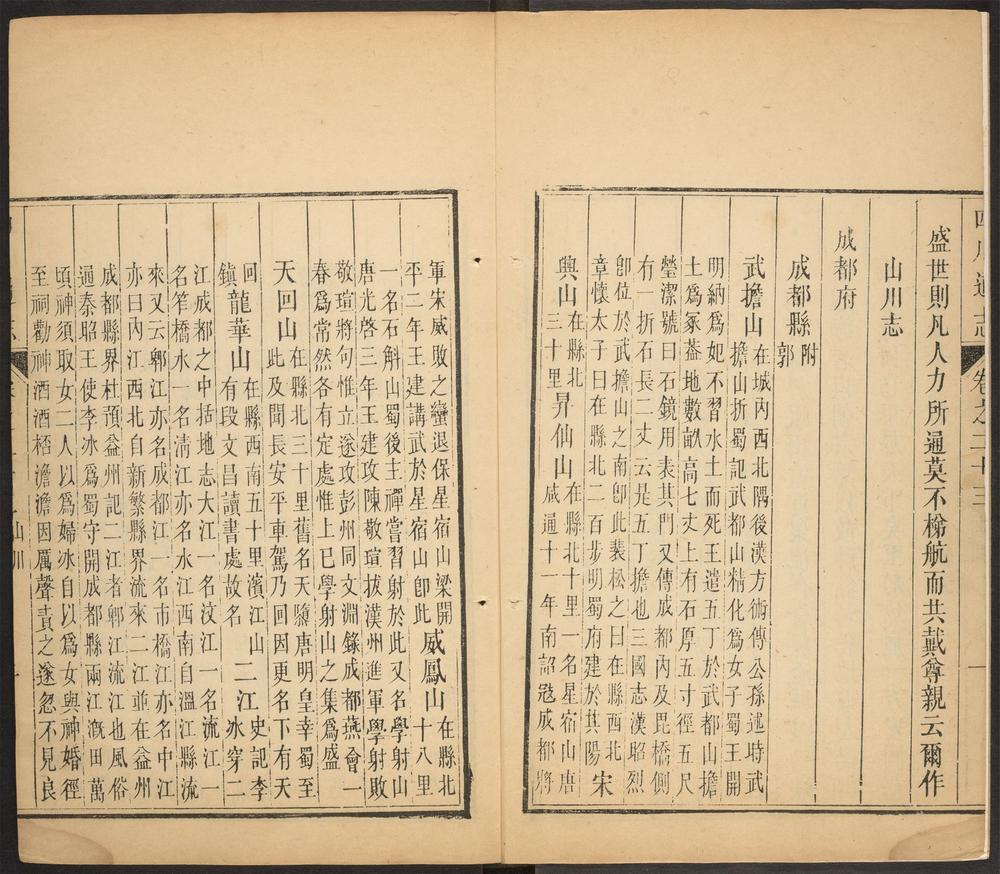 四川通志 卷之二十三 一
盛世則凡人力所通莫不梯航而共戴尊親云爾作
山川志
成都府
成都縣 附
郭
武擔山 在城內西北隅後漢方術傳公孫述時武
擔山折蜀記武都山精化爲女子蜀王開
明納爲妃不習水土而死王遣五丁於武都山擔
土爲冢葢地數畝高七丈上有石厚五寸徑五尺
瑩潔號曰石鏡用表其門又傳成都內及毘橋側
有一折石長二丈云是五丁擔也三國志漢昭烈
卽位於武擔山之南卽此裴松之曰在縣西北
章懷太子曰在縣北二百步明蜀府建於其陽 宋
興山 在縣北
三十里 昇仙山 在縣北十里一名星宿山唐
咸通十一年南詔寇成都將
軍宋威敗之蠻退保星宿山梁開
平二年王建講武於星宿山卽此 威鳳山 在縣北
十八里
一名石斛山蜀後主禪嘗習射於此又名學射山
唐光啓三年王建攻陳敬瑄拔漢州進軍學射敗
敬瑄將句惟立遂攻彭州同文淵錄成都燕會一
春爲常然各有定處惟上巳學射山之集爲盛
天回山 在縣北三十里舊名天隳唐明皇幸蜀至
此及聞長安平車駕乃回因更名下有天
回
鎭 龍華山 在縣西南五十里濱江山
有段文昌讀書處故名 二江 史記李
冰穿二
江成都之中括地志大江一名汶江一名流江一
名笮橋水一名淸江亦名水江西南自溫江縣流
來又云郫江亦名成都江一名市橋江亦名中江
亦曰內江西北自新繁縣界流來二江並在益州
成都縣界杜預益州記二江者郫江流江也風俗
通秦昭王使李冰爲蜀守開成都縣兩江漑田萬
頃神須取女二人以爲婦冰自以爲女與神婚徑
至祠勸神酒酒桮澹澹因厲聲責之遂忽不見良
山川